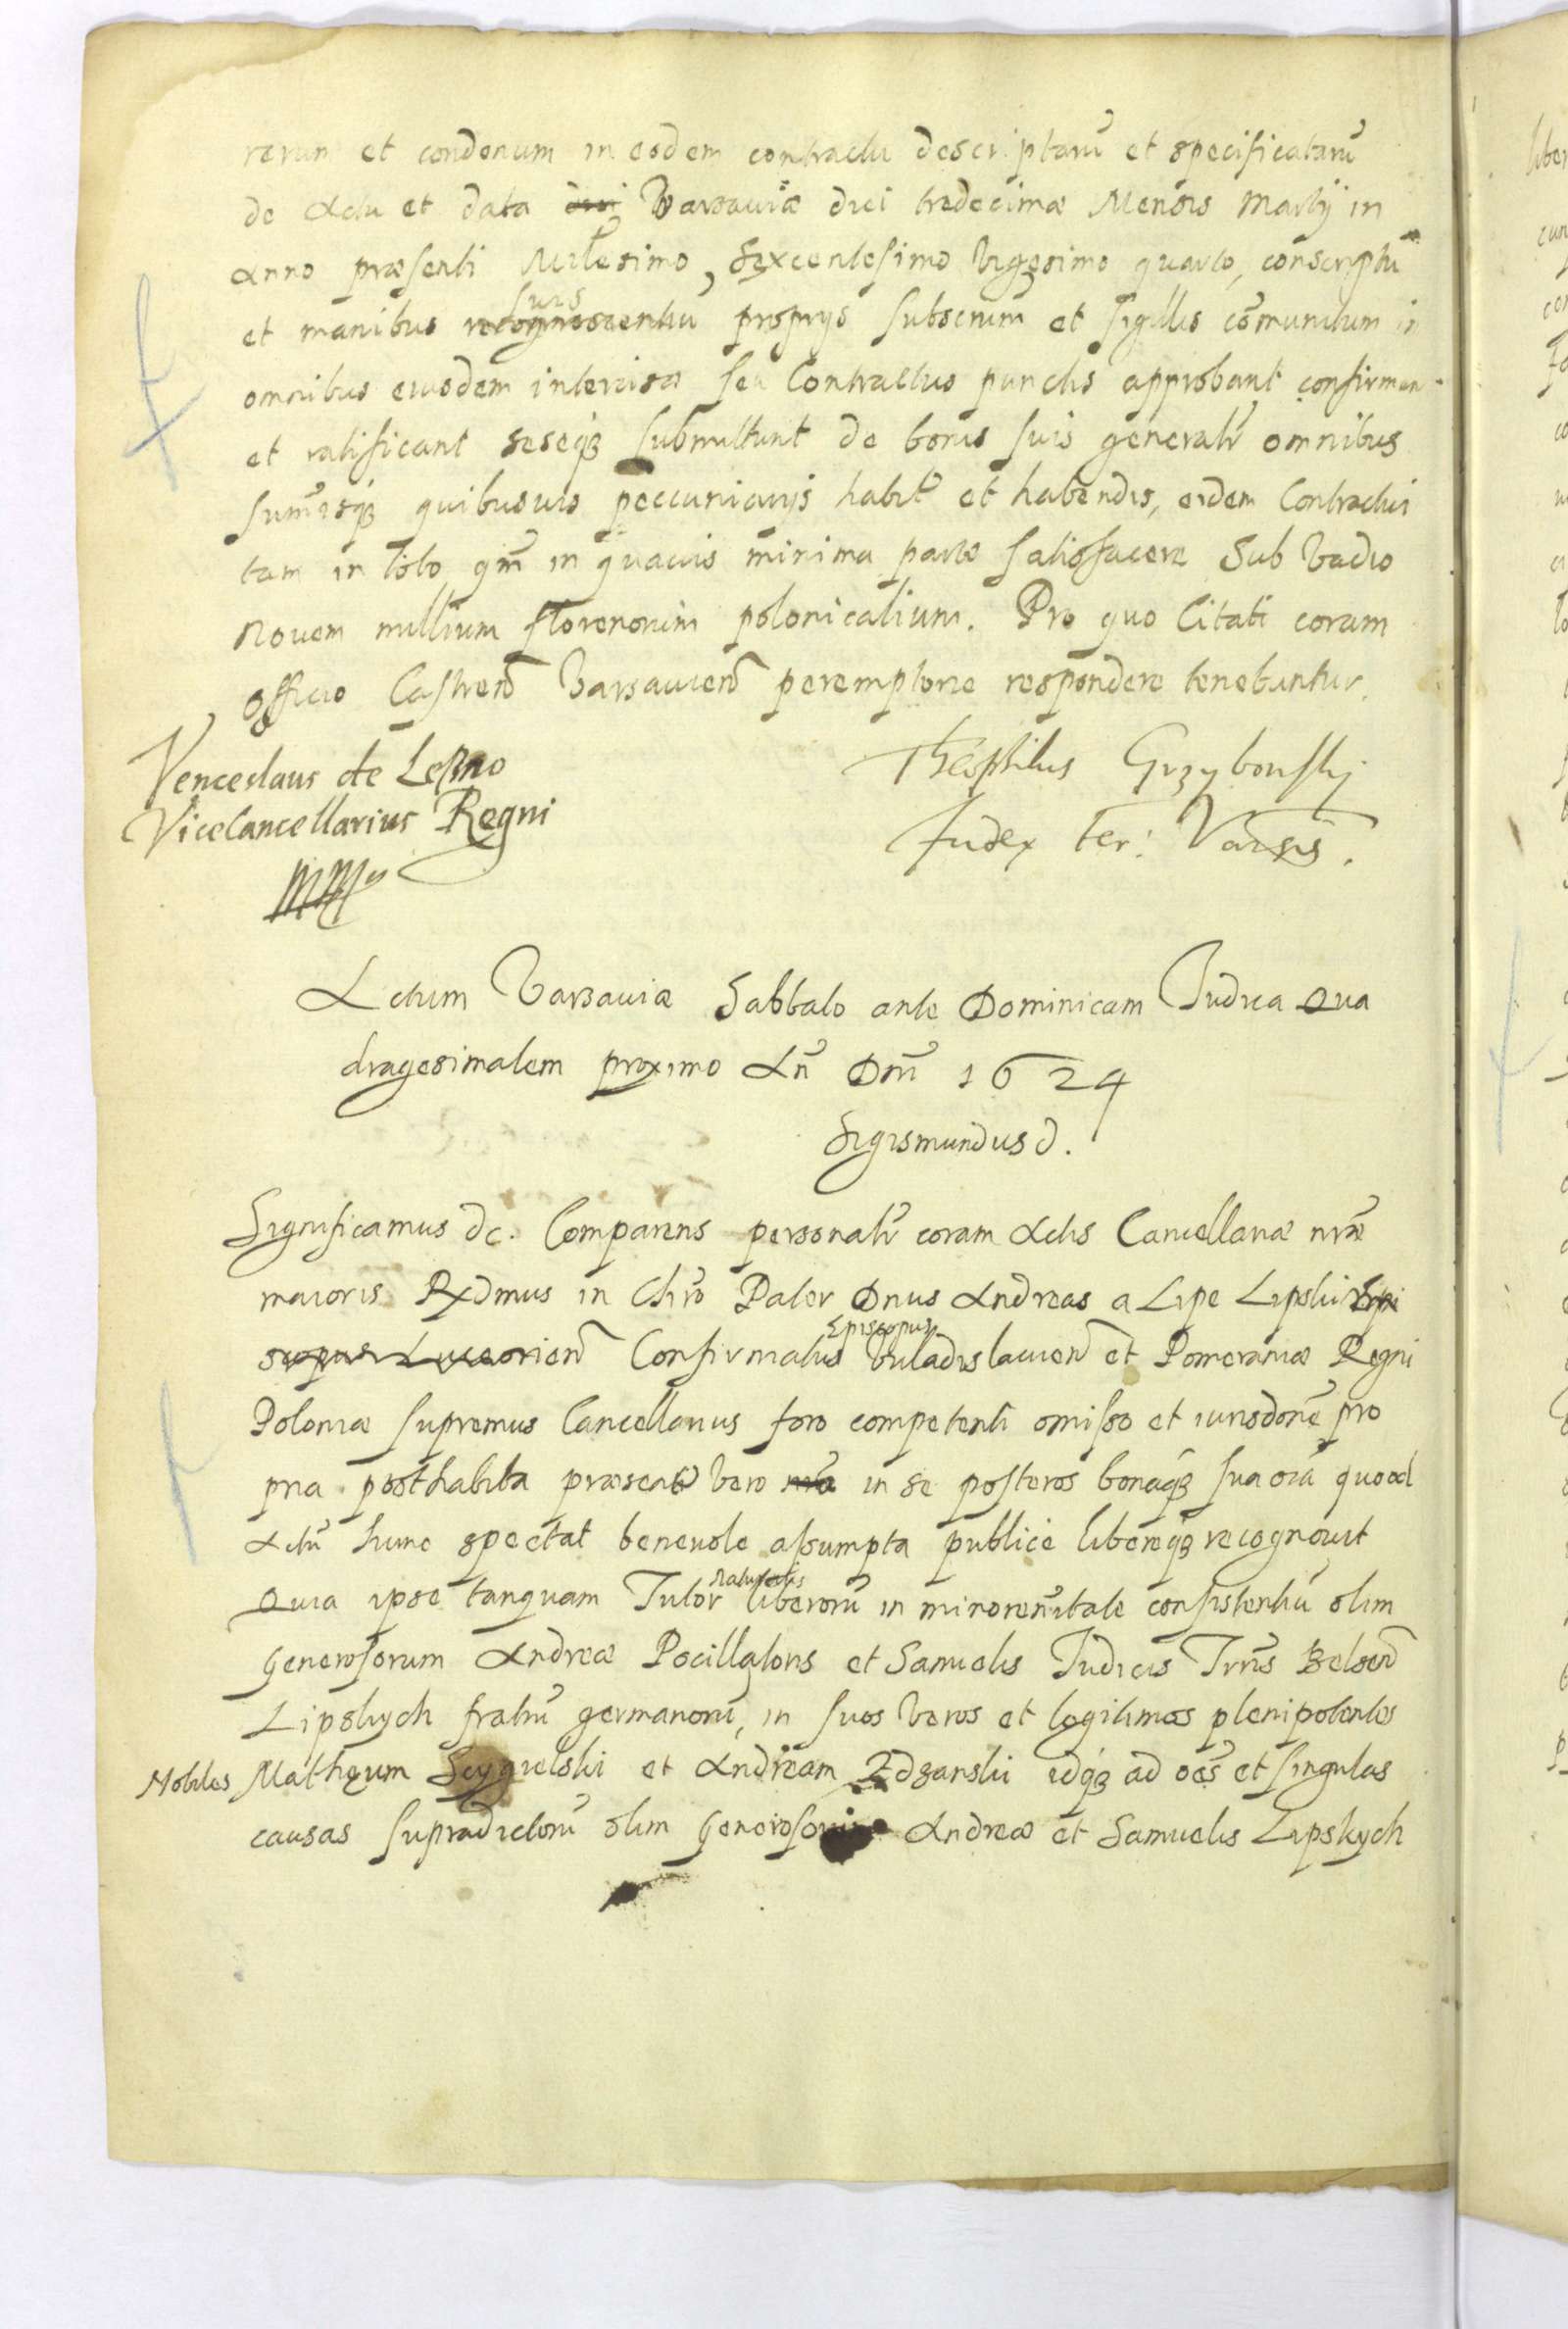 rerum et condenum in eodem contractu descriptarũ et specificatarũ
de Actu et data Varsauiæ diei tredecimæ Mensis Martij in
Anno præsenti Millesimo, Sexcentesimo Vigesimo quarto, conscriptũ
et manibus suis proprijs subscrium et sigillis cõmunitum in
omnibus eiusdem intercisæ seu Contractus punctis approbant confirman
et ratificant seseq3 submittunt de bonis suis generalr̃ omnibus
sum̃isq3 quibusuis peccuniarijs habit̃ et habendis, eidem Contractui
tam in toto qm̃ in quauis minima parte satisfacere Sub Vadio
Nouem millium florenorum polonicalium. Pro quo Citati coram
officio Castren̄ Varsauien̄ peremptorie respondere tenebuntur.
Venceslaus de Leszno
Vicecancellarius Regni
mpp
Theophilus Grzybowsky
Judex ter: Varsis.
Actum Varsauiæ Sabbato ante Dominicam Judica Qua
dragesimalem proximo An̄ Dm̄ 1624
Sigismundus d.
Significamus dc. Comparens personalr̃ coram Actis Cancellariæ nr̃æ
maioris Rx̃dmus in Chr̃o Pater Dnus Andreas a Lipe Lipski Epi
scopus Luceorien̄ Confirmatus Episcopus Vuladislauien̄ et Pomeraniæ Regni
Poloniæ supremus Cancellarius foro competenti omisso et iurisdone̅ pro
pria posthabita præsen̄ti Vero in se posteros bonaq3 sua oĩa quoad
Actũ hunc spectat beneuole assumpta publice libereq3 recognouit
Quia ipse tanquam Tutor naturalis liberorũ in minoren̄itate consistentiũ olim
Generosorum Andreæ Pocillatoris et Samuelis Judicis Trr̃is Belsen̄
Lipskych fratrũ germanorũ, in suos Veros et legitimos plenipotentes
Nobiles Mathęum Scyguelski et Andream Zdzanski idq3 ad oẽs et singulas
causas supradictorũ olim Generosorum Andreæ et Samuelis Lipskych